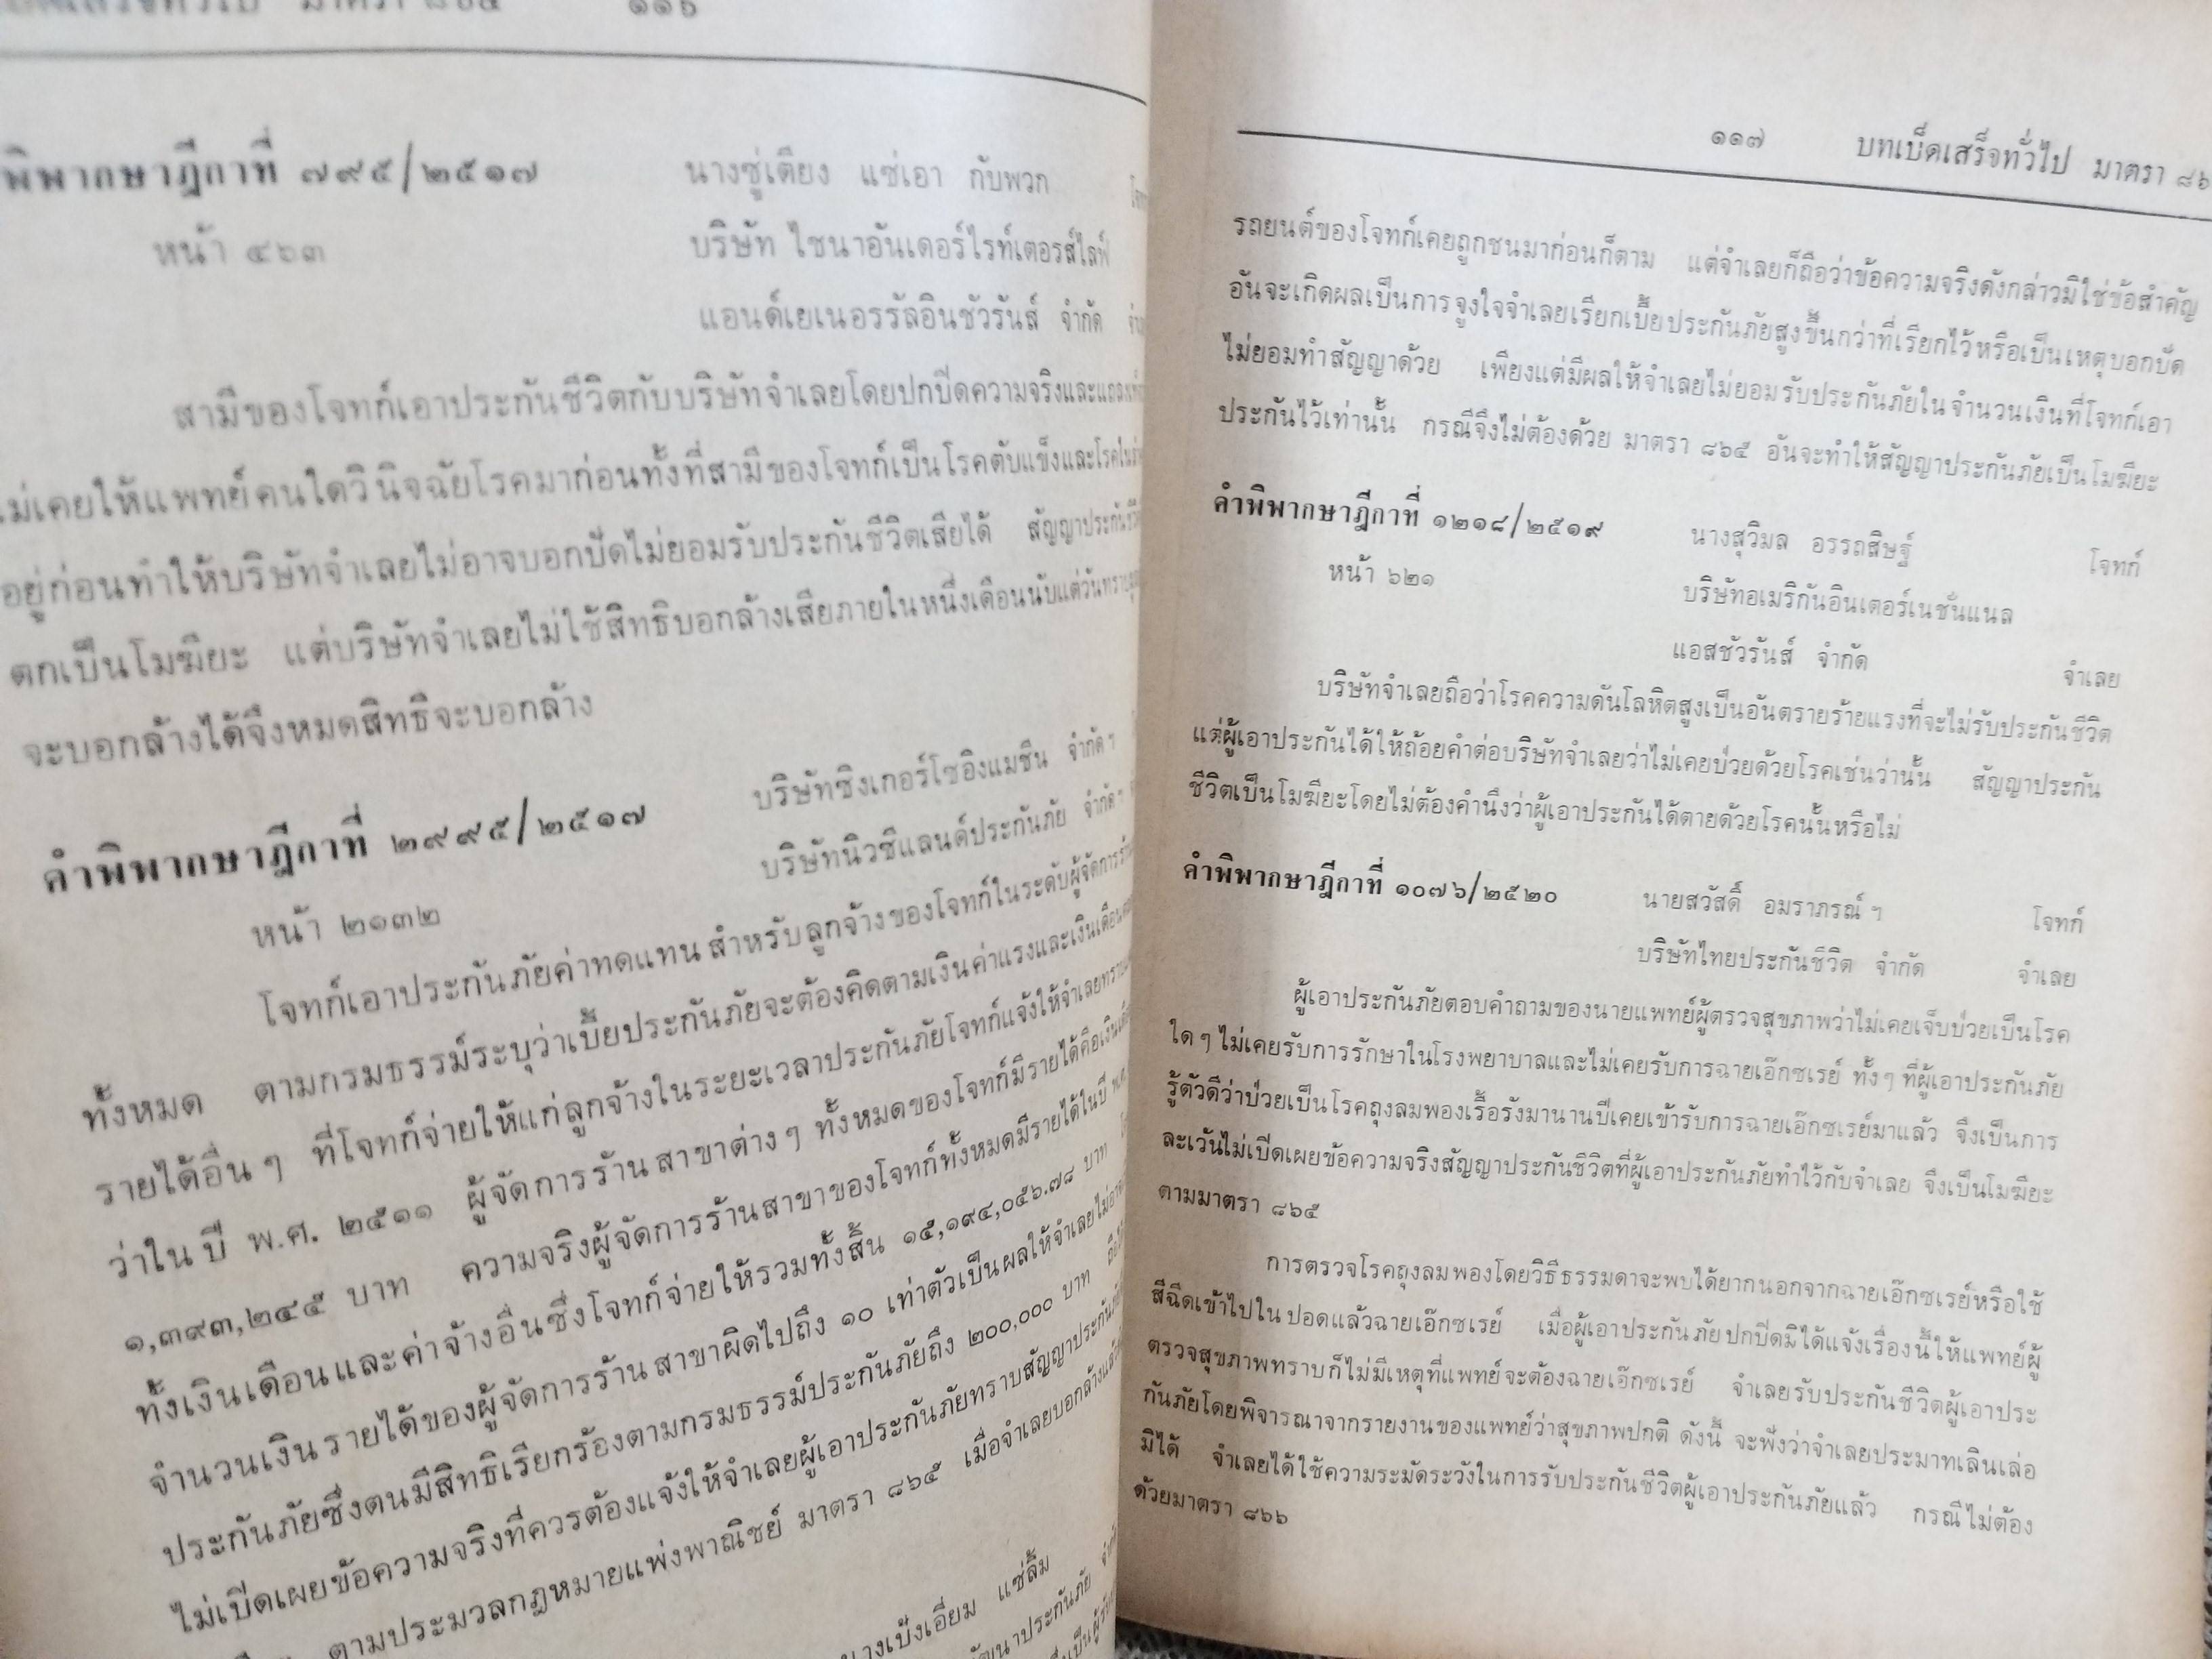 มาตรา ๘๖๕ ๑๑๖
พิพากษาฎีกาที่ ๗๙๕/๒๕๑๗ นางซู่เตียง แซ่เอา กับพวก
หน้า ๔๖๓ บริษัท ไชนาอันเดอร์ไรท์เตอรส์ไลฟ์
แอนด์เยเนอรรัลอินชัวรันส์ จำกัด
สามีของโจทก์เอาประกันชีวิตกับบริษัทจำเลยโดยปกปิดความจริงและแถลง
ไม่เคยให้แพทย์คนใดวินิจฉัยโรคมาก่อนทั้งที่สามีของโจทก์เป็นโรคตับแข็งและโรค
อยู่ก่อนทำให้บริษัทจำเลยไม่อาจบอกปัดไม่ยอมรับประกันชีวิตเสียได้ สัญญาประกัน
ตกเป็นโมฆียะ แต่บริษัทจำเลยไม่ใช้สิทธิบอกล้างเสียภายในหนึ่งเดือนนับแต่วันทราบ
จะบอกล้างได้จึงหมดสิทธิจะบอกล้าง
คำพิพากษาฎีกาที่ ๒๙๙๕/๒๕๑๗ บริษัทซิงเกอร์โซอิงแมชีน จำกัดฯ
หน้า ๒๑๓๒ บริษัทนิวซีแลนด์ประกันภัย จำกัดฯ
โจทก์เอาประกันภัยค่าทดแทนสำหรับลูกจ้างของโจทก์ในระดับผู้จัดการ
ทั้งหมด ตามกรมธรรม์ระบุว่าเบี้ยประกันภัยจะต้องคิดตามเงินค่าแรงและเงินเดือน
รายได้อื่น ๆ ที่โจทก์จ่ายให้แก่ลูกจ้างในระยะเวลาประกันภัยโจทก์แจ้งให้จำเลยทราบ
ว่าใน ปี พ.ศ. ๒๕๑๑ ผู้จัดการร้านสาขาต่าง ๆ ทั้งหมดของโจทก์มีรายได้คือเงิน
๑,๓๙๓,๒๔๕ บาท ความจริงผู้จัดการร้านสาขาของโจทก์ทั้งหมดมีรายได้ในปี พ.ศ.
ทั้งเงินเดือนและค่าจ้างอื่นซึ่งโจทก์จ่ายให้รวมทั้งสิ้น ๑๕,๑๙๔,๐๕๖.๗๘ บาท
จำนวนเงินรายได้ของผู้จัดการร้านสาขาผิดไปถึง ๑๐ เท่าตัวเป็นผลให้จำเลย
ประกันภัยซึ่งตนมีสิทธิเรียกร้องตามกรมธรรม์ประกันภัยถึง ๒๐๐,๐๐๐ บาท
ไม่เปิดเผยข้อความจริงที่ควรต้องแจ้งให้จำเลยผู้เอาประกันภัยทราบสัญญาประกันภัย
ตามประมวลกฎหมายแพ่งพาณิชย์ มาตรา ๘๖๕ เมื่อจำเลยบอกล้างแล้ว
นางเบ๊งเอี่ยม แซ่ลิ้ม
ประกันภัย
๑๑๗ บทเบ็ดเสร็จทั่วไป มาตรา ๘๖
รถยนต์ของโจทก์เคยถูกชนมาก่อนก็ตาม แต่จำเลยก็ถือว่าข้อความจริงดังกล่าวมิใช่ข้อสำคัญ
อันจะเกิดผลเป็นการจูงใจจำเลยเรียกเบี้ยประกันภัยสูงขึ้นกว่าที่เรียกไว้หรือเป็นเหตุบอกปัด
ไม่ยอมทำสัญญาด้วย เพียงแต่มีผลให้จำเลยไม่ยอมรับประกันภัยในจำนวนเงินที่โจทก์เอา
ประกันไว้เท่านั้น กรณีจึงไม่ต้องด้วย มาตรา ๘๖๕ อันจะทำให้สัญญาประกันภัยเป็นโมฆียะ
คำพิพากษาฎีกาที่ ๑๒๑๘/๒๕๑๙ นางสุวิมล อรรถสิษฐ์ โจทก์
หน้า ๖๒๑ บริษัทอเมริกันอินเตอร์เนชั่นแนล
แอสชัวรันส์ จำกัด จำเลย
บริษัทจำเลยถือว่าโรคความดันโลหิตสูงเป็นอันตรายร้ายแรงที่จะไม่รับประกันชีวิต
แต่ผู้เอาประกันได้ให้ถ้อยคำต่อบริษัทจำเลยว่าไม่เคยป่วยด้วยโรคเช่นว่านั้น สัญญาประกัน
ชีวิตเป็นโมฆียะโดยไม่ต้องคำนึงว่าผู้เอาประกันได้ตายด้วยโรคนั้นหรือไม่
คำพิพากษาฎีกาที่ ๑๐๗๖/๒๕๒๐ นายสวัสดิ์ อมราภรณ์ ฯ โจทก์
บริษัทไทยประกันชีวิต จำกัด จำเลย
ผู้เอาประกันภัยตอบคำถามของนายแพทย์ผู้ตรวจสุขภาพว่าไม่เคยเจ็บป่วยเป็นโรค
ใด ๆ ไม่เคยรับการรักษาในโรงพยาบาลและไม่เคยรับการฉายเอ๊กซเรย์ ทั้ง ๆ ที่ผู้เอาประกันภัย
รู้ตัวดีว่าป่วยเป็นโรคถุงลมพองเรื้อรังมานานปีเคยเข้ารับการฉายเอ๊กซเรย์มาแล้ว จึงเป็นการ
ละเว้นไม่เปิดเผยข้อความจริงสัญญาประกันชีวิตที่ผู้เอาประกันภัยทำไว้กับจำเลย จึงเป็นโมฆียะ
ตามมาตรา ๘๖๕
การตรวจโรคถุงลมพองโดยวิธีธรรมดาจะพบได้ยากนอกจากฉายเอ๊กซเรย์หรือใช้
สีฉีดเข้าไปใน ปอดแล้วฉายเอ๊กซเรย์ เมื่อผู้เอาประกันภัยปกปิดมิได้แจ้งเรื่องนี้ให้แพทย์ผู้
ตรวจสุขภาพทราบก็ไม่มีเหตุที่แพทย์จะต้องฉายเอ๊กซเรย์ จำเลยรับประกันชีวิตผู้เอาประ
กันภัยโดยพิจารณาจากรายงานของแพทย์ว่าสุขภาพปกติ ดังนี้ จะฟังว่าจำเลยประมาทเลินเล่อ
มิได้ จำเลยได้ใช้ความระมัดระวังในการรับประกันชีวิตผู้เอาประกันภัยแล้ว กรณีไม่ต้อง
ด้วยมาตรา ๘๖๖